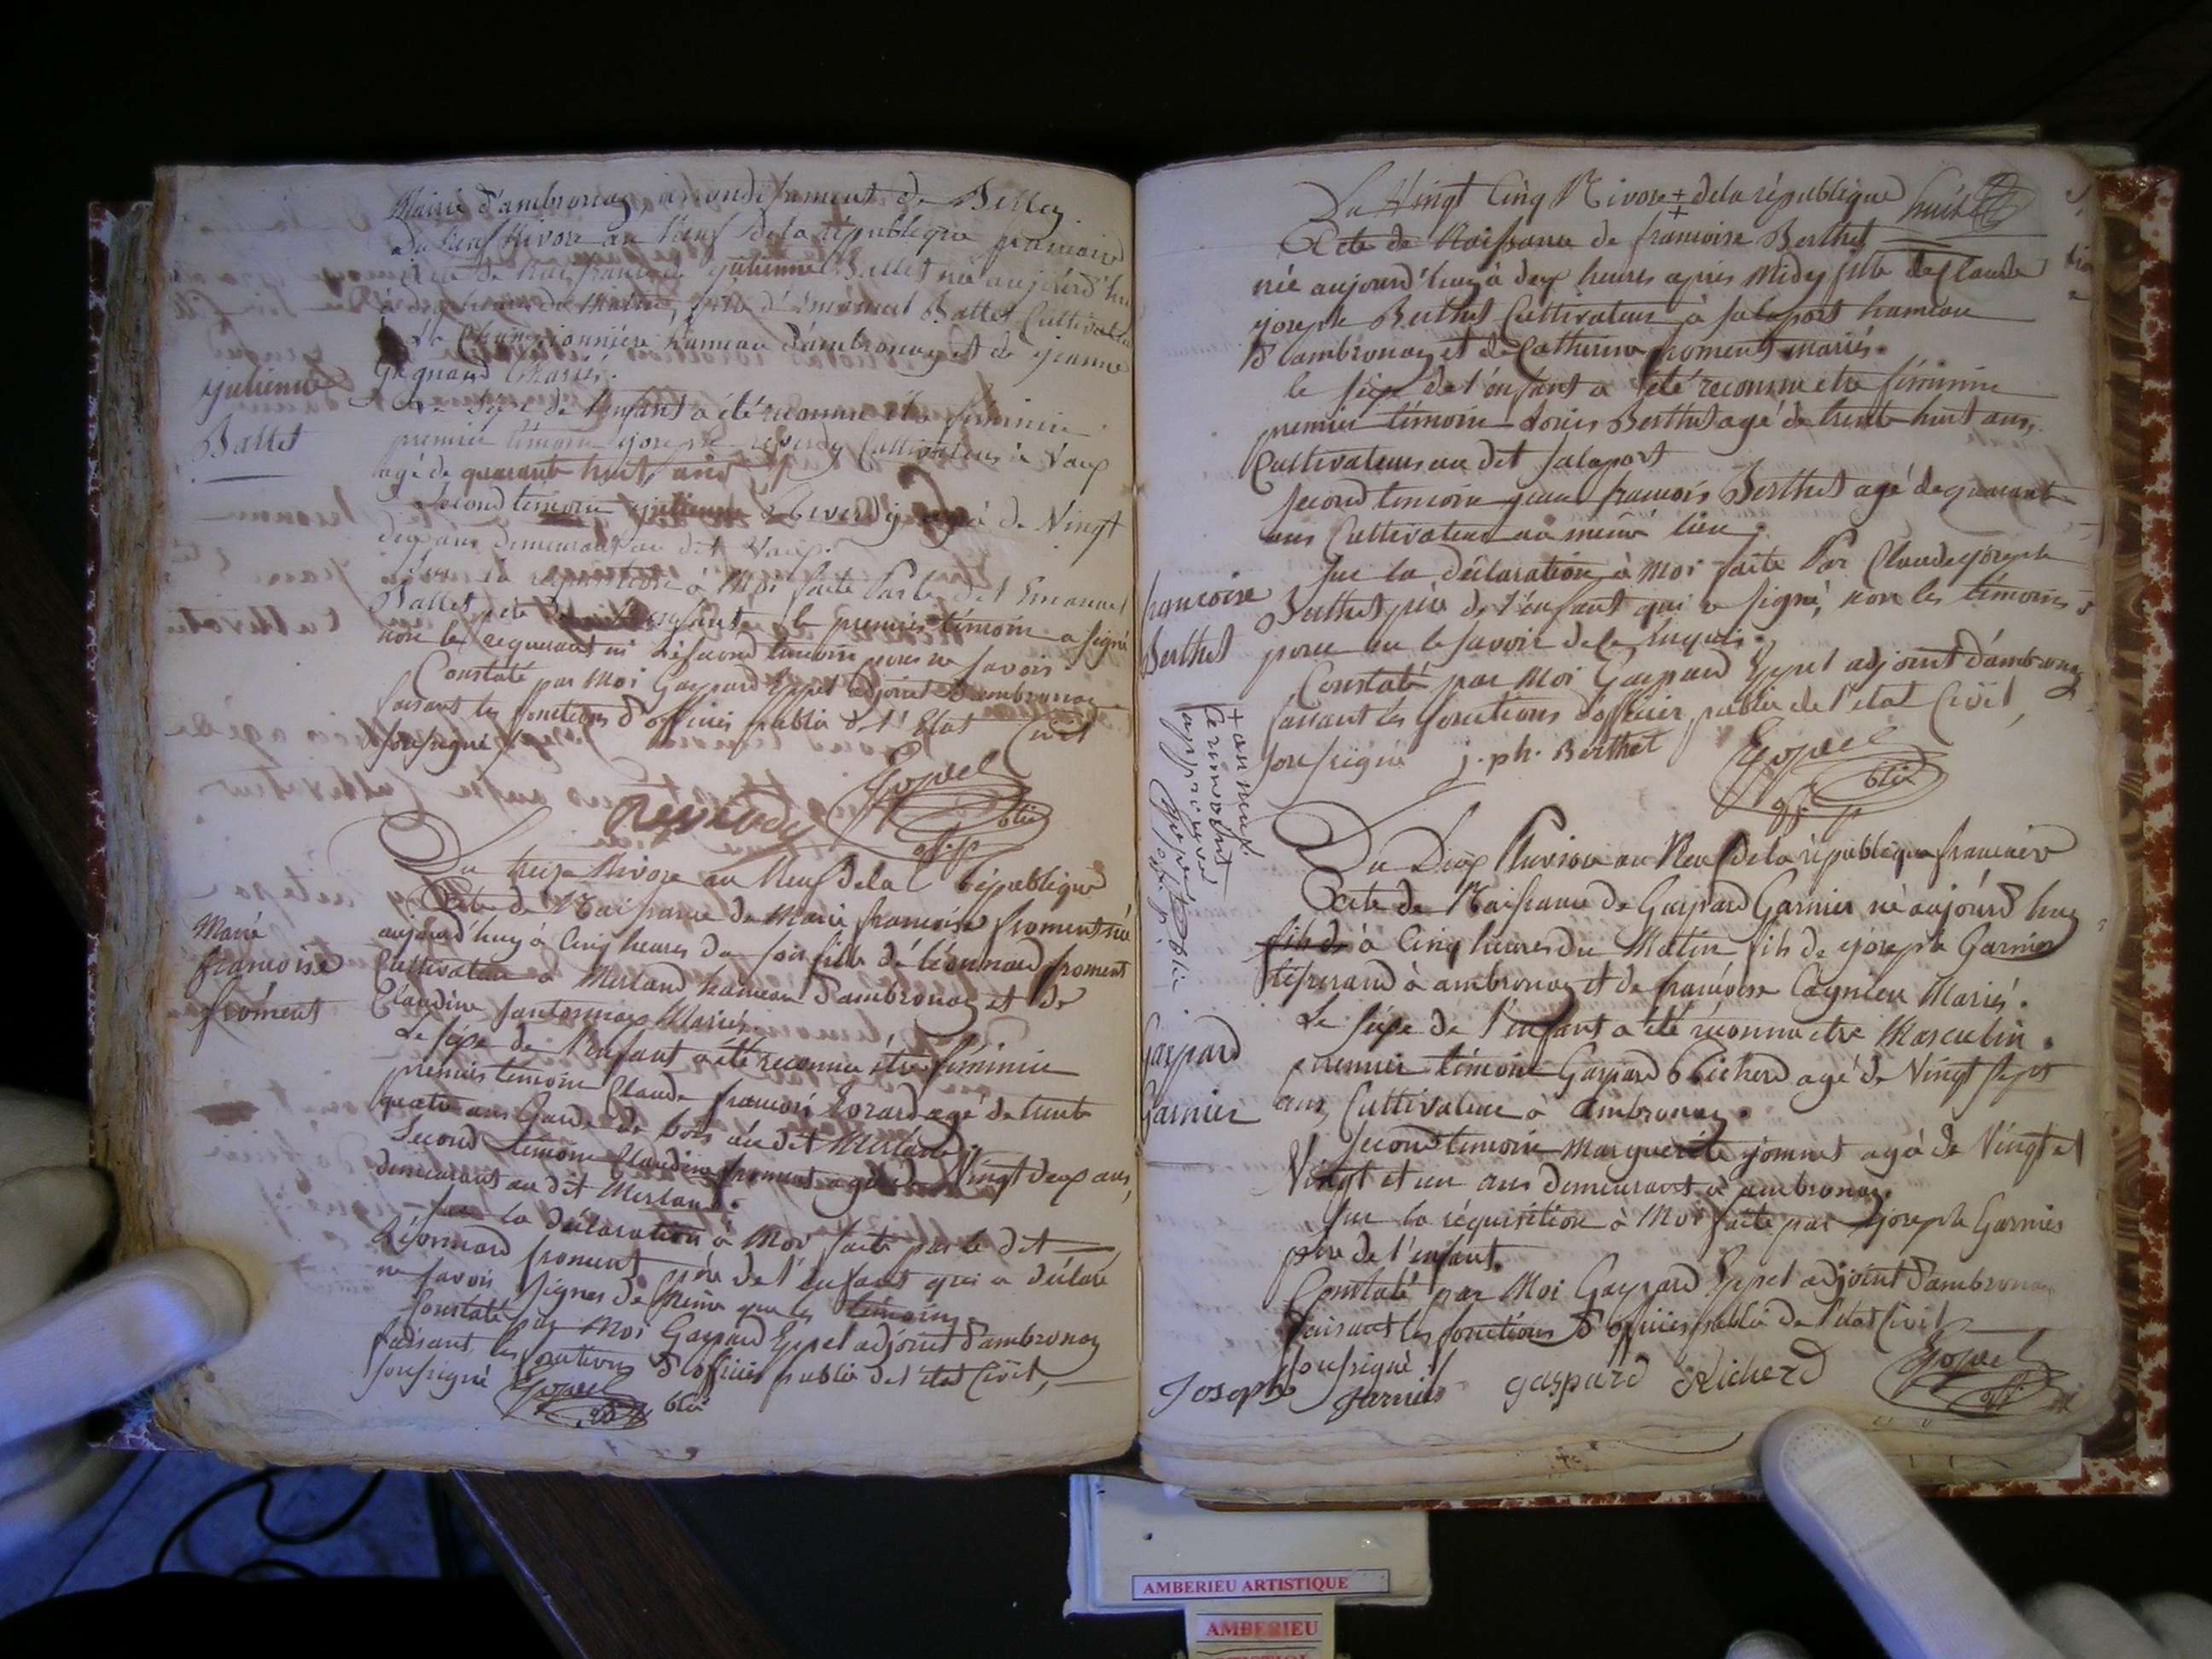 Mairie d'ambronay, arrondissement de Belley.
Du Neuf Nivose an Neuf de la république francaise
Acte de Naissance de julienne Ballet née aujourd'huy
à heures du Matin, fille d'Emanuel Ballet Cultivateur
à la Championnière hameau d'ambronay et de jeanne
gagnard Mariés.
julienne
Ballet
Le Sexe de l'enfant a été reconnu être féminin
premier témoin joseph reverdy Cultivateur à Vaux
agé de quarante huit ans
Second témoin julienne Reverdy agée de Vingt
deux ans demeurant au dit Vaux.
Sur la réquisition à Moi faite Par le dit Emanuel
Ballet père de l'enfant le premier témoin a signé
non le requerant ni le second témoin pour ne savoir
Constaté par Moi Gaspard Eppel adjoint d'ambronay
faisant les fonctions d'officier public de l'Etat Civil
soussigné
Eppel
Reverdy
Du treize Nivose an Neuf de la République
Acte de Naissance de Marie francoise froment née
aujourd'huy à Cinq heures du soir fille de léonnard froment
Cultivateur à Merland hameau d'ambronay et de
Claudine Mariés
Marie
francoise
froment
Le sexe de l'enfant a été reconnu être féminin
premier témoin Claude francois agé de trente
quatre ans Garde de bois au dit Merland
Second témoin Claudine froment agée de Vingt deux ans,
demeurant au dit Merland.
Sur la déclaration à Moi faite par le dit
léonnard froment père de l'enfant qui a déclaré
ne savoir signer de même que les témoins.
Constaté par Moi Gaspard Eppel adjoint d'ambronay
faisant les fonctions d'officier public de l'état Civil,
soussigné
Eppel
Du Vingt Cinq Nivose ‡ de la république huit
Acte de Naissance de francoise Berthet
née aujourd'huy à deux heures apres Midy fille de Claude
joseph Berthet Cultivateur à salaport hameau
d'ambronay et de Catherine froment mariés.
le sexe de l'enfant a été reconnu etre féminin
premier témoin Berthet agé de trente huit ans,
Cultivateur au dit salaport
second témoin jean francois Berthet agé de quarante
ans Cultivateur au même lieu.
Sur la déclaration à Moi faite Par Claude joseph
Berthet père de l'enfant qui a signé, non les témoins
pour ne le savoir de ce enquis.
francoise
Berthet
Constaté par Moi Gaspard Eppel adjoint d'ambronay
faisant les fonctions d'officier public de l'état Civil,
soussigné j. ph. Berthet Eppel
+ an neuf
Ce renvoi
approuvé
Eppel
Du Dix Pluviose an Neuf de la république francaise
Acte de Naissance de Gaspard Garnier né aujourd'huy
fils de à Cinq heures du Matin fils de joseph Garnier
tisserand à ambronay et de francoise Cagnieu Mariés.
Le sexe de l'enfant a été reconnu etre Masculin.
premier témoin Gaspard Richerd agé de Vingt sept
ans, Cultivateur à Ambronay.
Gaspard
Garnier
Second témoin Marguerite agée de Vingt et
Vingt et un ans demeurant à ambronay.
Sur la réquisition à Moi faite par joseph Garnier
père de l'enfant.
Constaté par Moi Gaspard Eppel adjoint d'ambronay
faisant les fonctions d'officier public de l'état Civil
soussigné
Joseph Garnier gaspard Richerd Eppel
AMBERIEU ARTISTIQUE
AMBERIEU